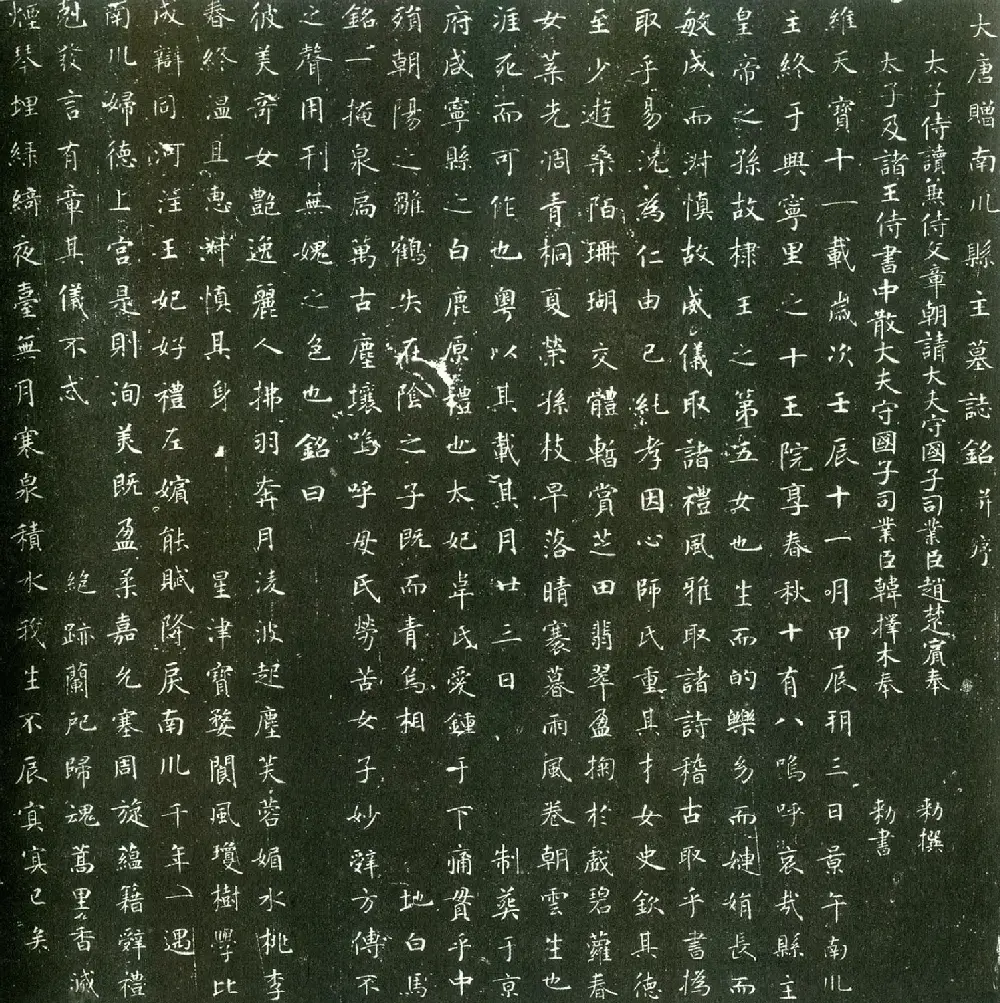 大唐贈南川縣主墓誌銘并序
太子侍讀兼侍文章朝請大夫守國子司業臣趙楚賓奉 勅撰
太子及諸王侍書中散大夫守國子司業臣韓擇木奉 勅書
維天寶十一載歲次壬辰十一月甲辰朔三日景午南川
主終于興寧里之十王院享春秋十有八嗚呼哀哉縣主
皇帝之孫故棣王之第五女也生而的皪幼而婕娟長而
敏成而淑慎故威儀取諸禮風雅取諸詩稽古取乎書撝
取乎易況為仁由己純孝因心師氏重其才女史欽其德
至少遊桑陌珊瑚交體暫賞芝田翡翠盈掬於戲碧蘿春
女葉先凋青桐夏榮孫枝早落晴褰暮雨風卷朝雲生也
涯死而可作也粵以其載其月廿三日 制葬于京
府咸寧縣之白鹿原禮也太妃卓氏愛鍾于下痛貫乎中
殞朝陽之雛鶴失在陰之子既而青烏相 地白馬
銘一掩泉扃萬古塵壤嗚呼母氏勞苦女子妙辤方傳不
之聲用刊無媿之色也銘曰
彼美奇女艷逸麗人拂羽奔月淩波起塵芙蓉媚水桃李
春終溫且惠淑慎其身 星津寶婺閬風瓊樹學比
成辯同河注王妃好禮左嬪能賦降戾南川千年一遇
南川婦德上宮是則洵美既盈柔嘉允塞周旋蘊籍辤禮
剋發言有章其儀不忒 絕跡蘭戺歸魂蒿里香滅
煙琴埋綠綺夜臺無月寒泉積水我生不辰寘寘已矣